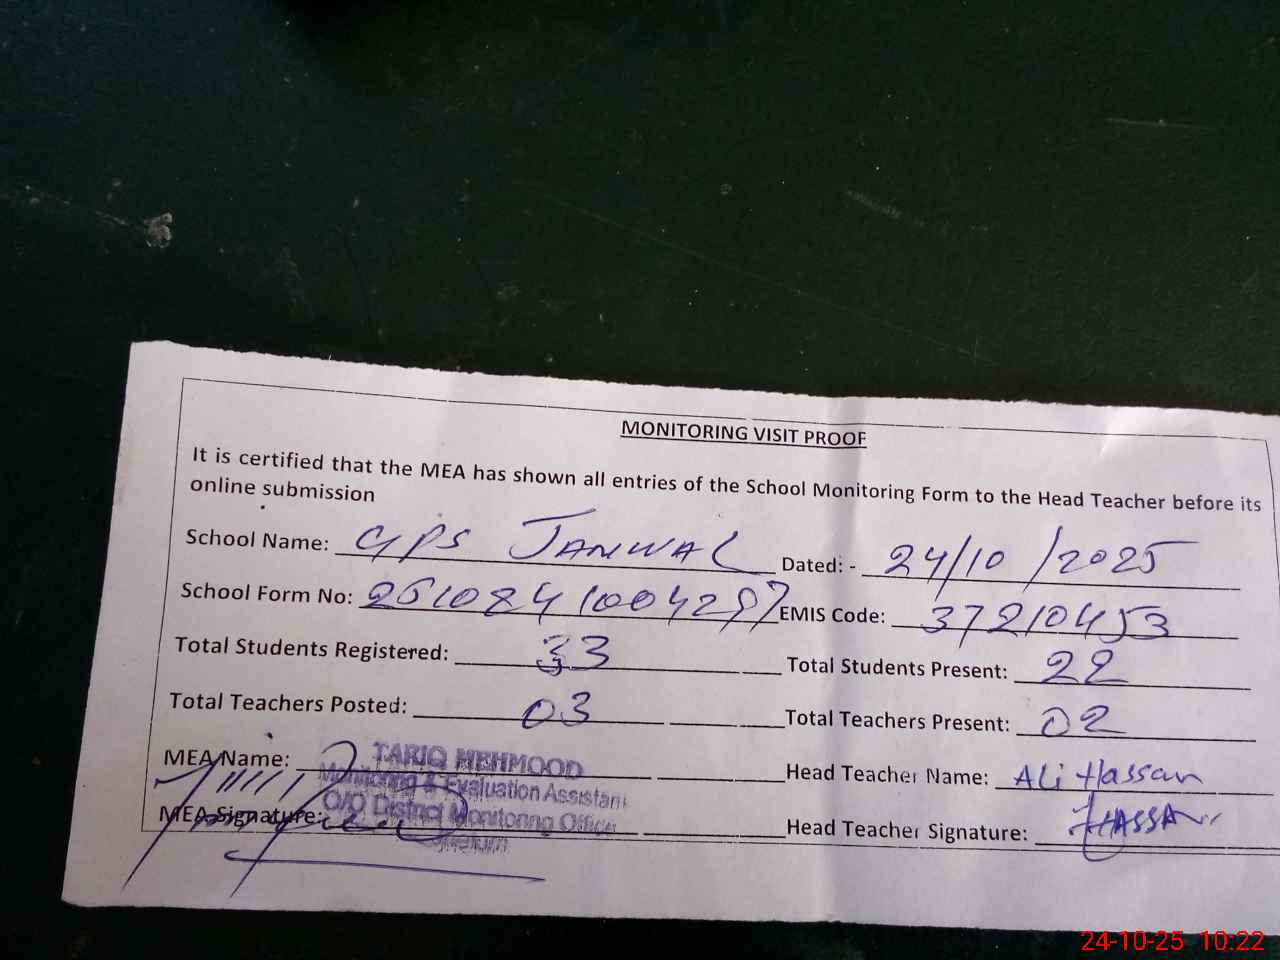 MONITORING VISIT PROOF
It is certified that the MEA has shown all entries of the School Monitoring Form to the Head Teacher before its
online submission
School Name: GPS JANWAL Dated: - 24/10/2025
School Form No: EMIS Code: 37210453
Total Students Registered: 33 Total Students Present: 22
Total Teachers Posted: 03 Total Teachers Present: 02
MEA Name: TARIQ MEHMOOD
Monitoring & Evaluation Assistant
Head Teacher Name: Ali Hassan
MEA Signature: O/O District Monitoring Office
Jhelum
Head Teacher Signature: HASSAN
24-10-25 10:22